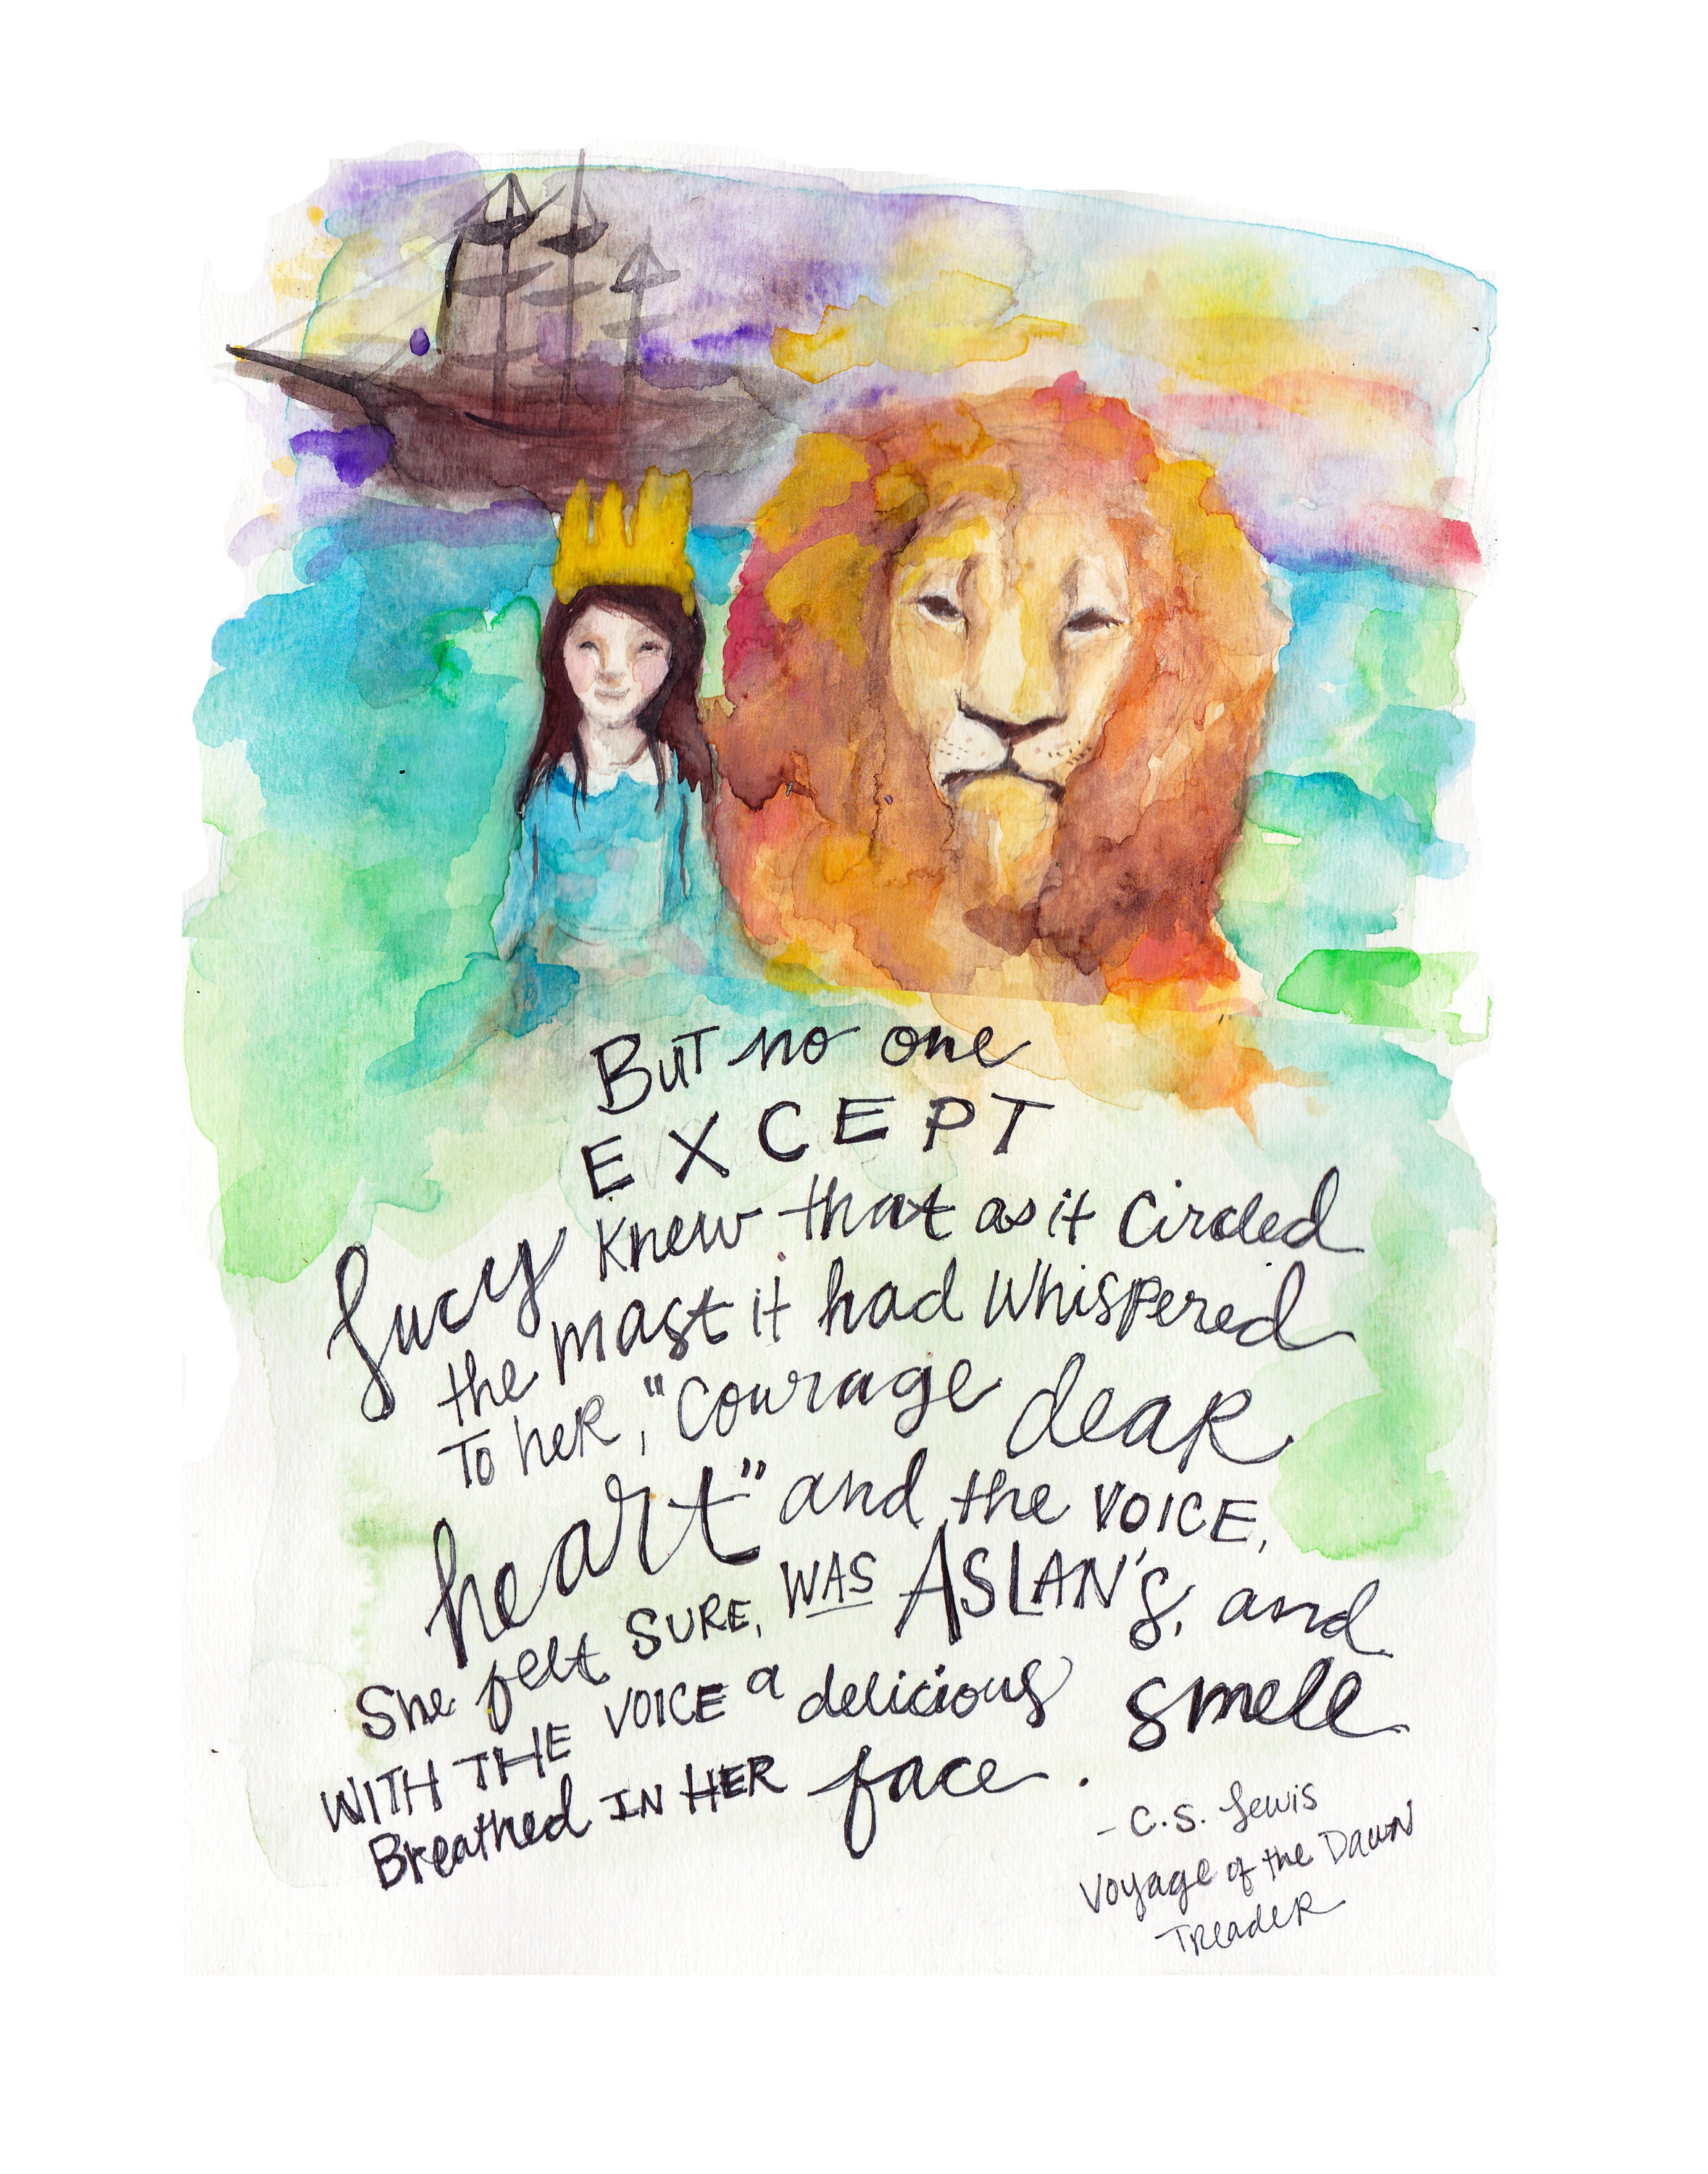 But no one
EXCEPT
Lucy knew that as it Circled
the mast it had Whispered
To heR, "Courage deaR
heart" and the VOICE,
She felt SURE, WAS ASLAN'S, and
WITH THE VOICE a delicious smell
Breathed IN HER face.
- C.S. Lewis
Voyage of the Dawn
TReadeR